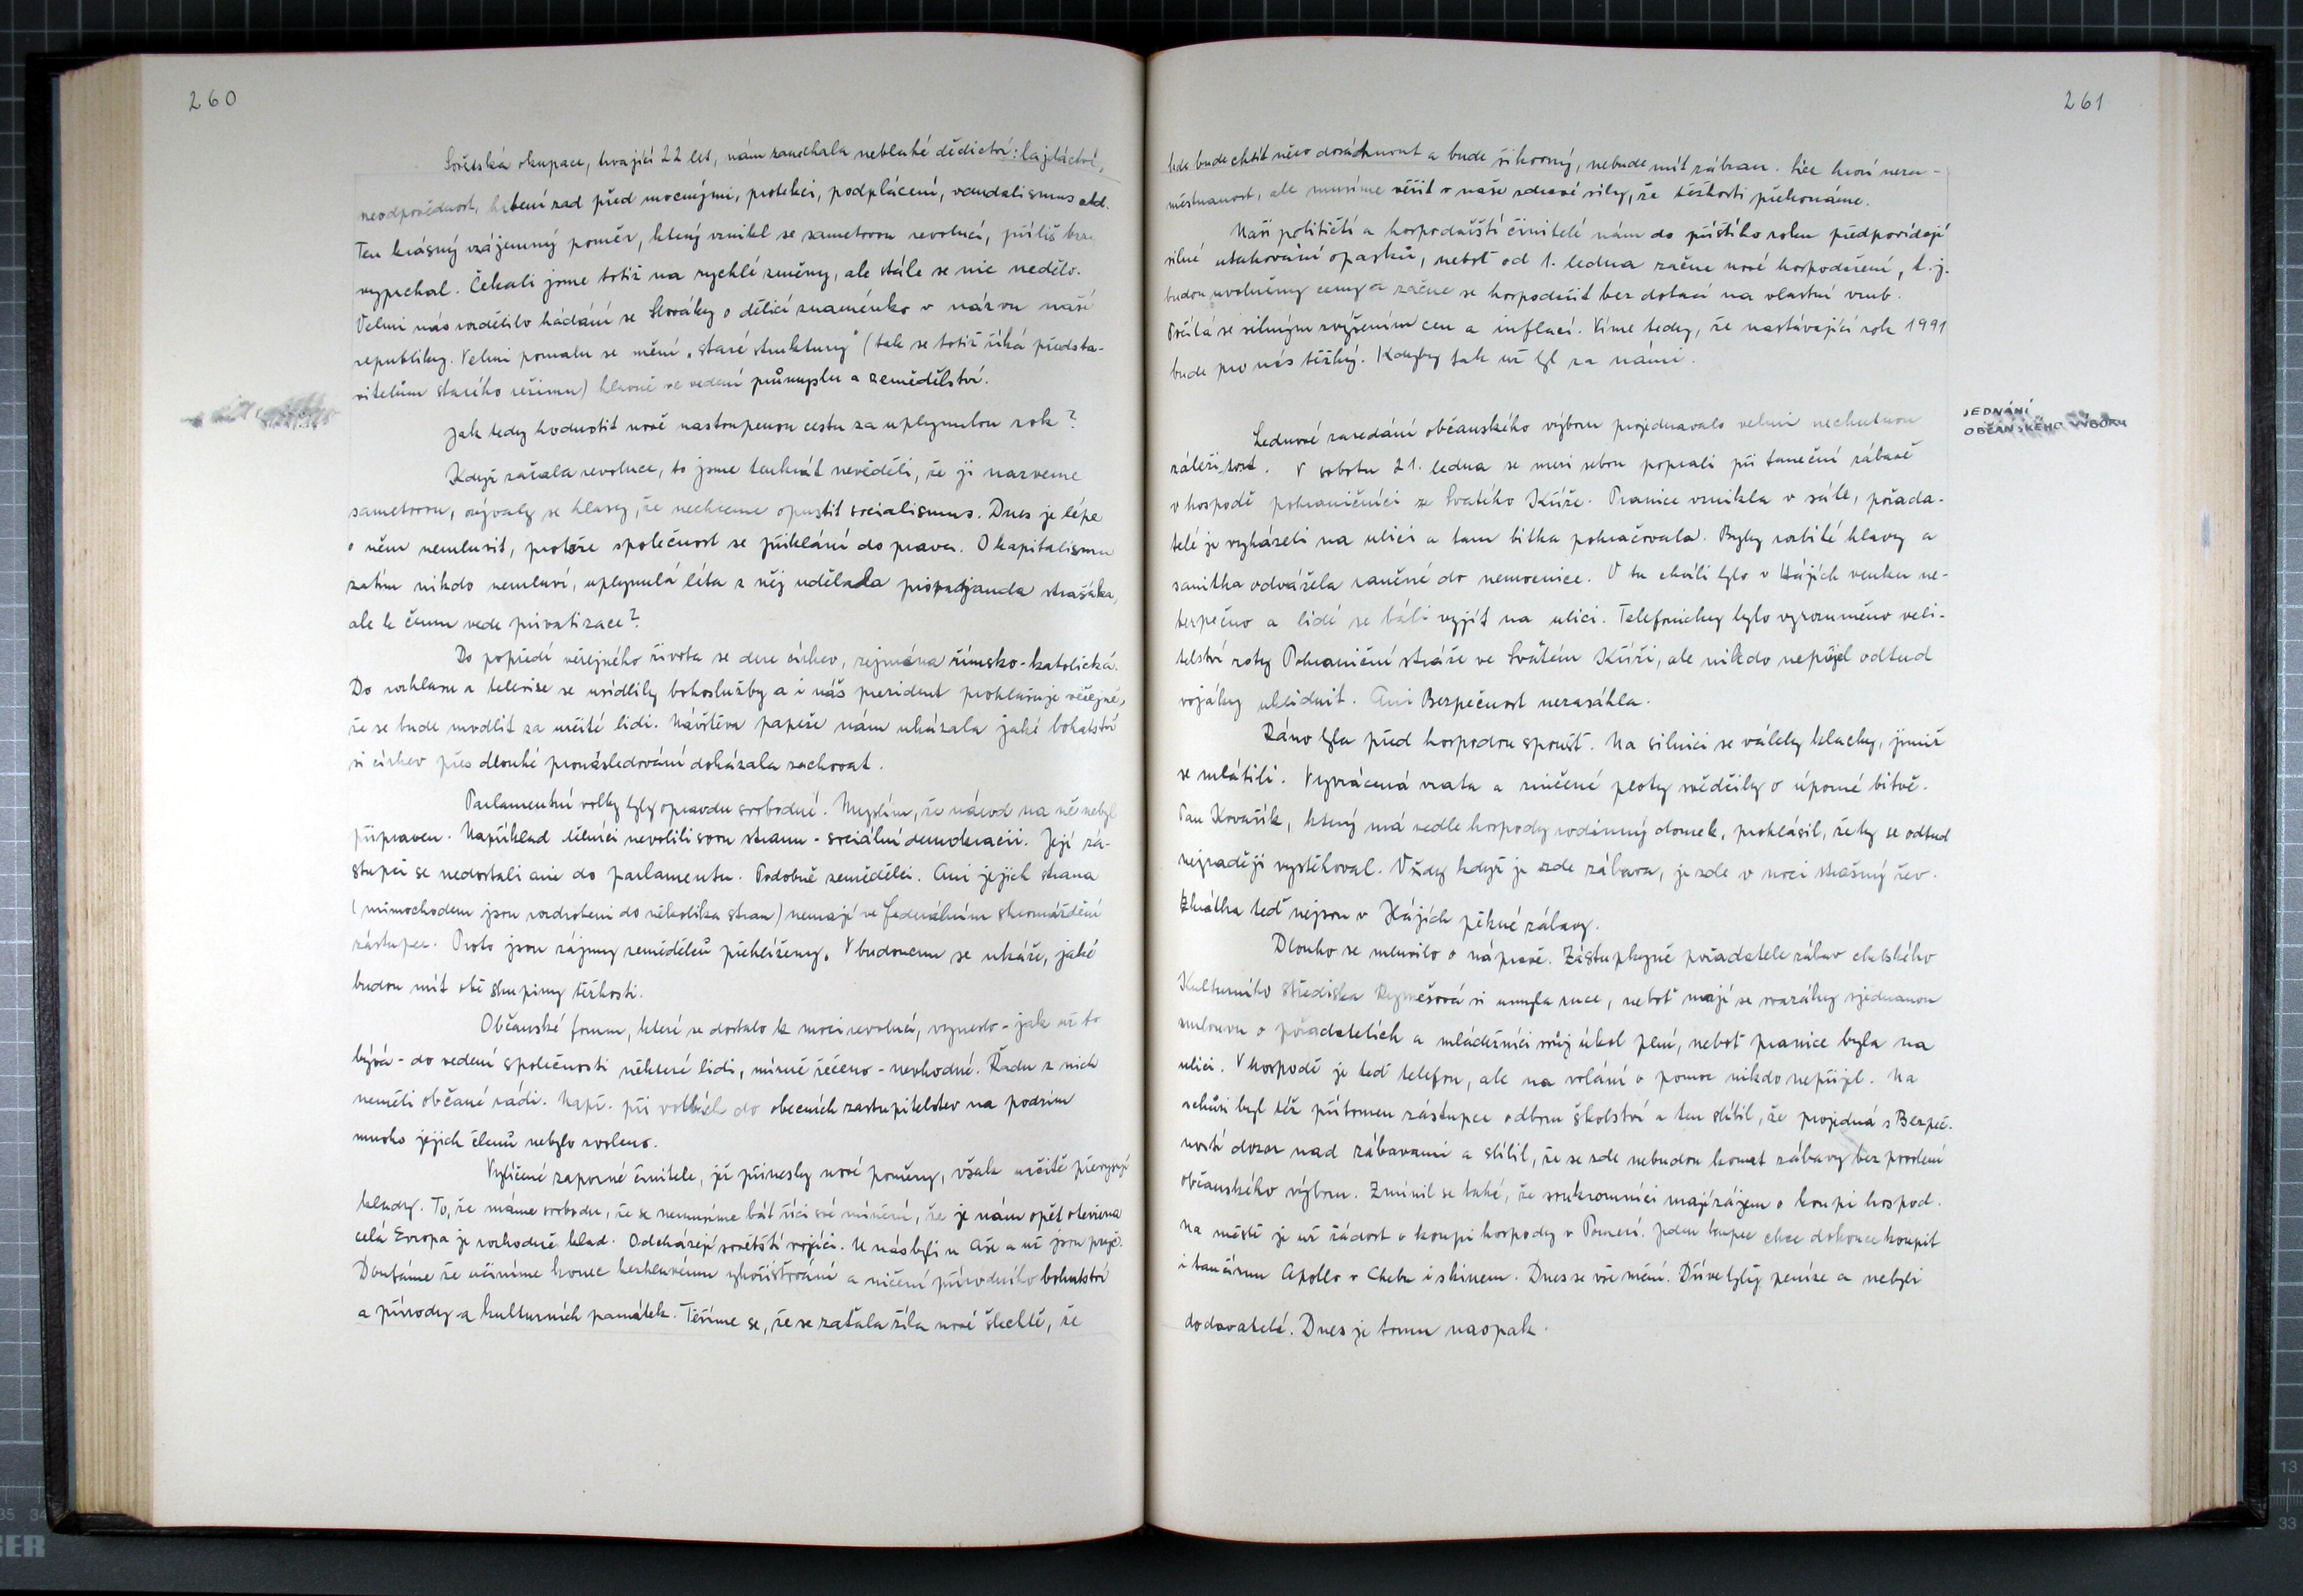 260
Sovětská okupace, trvající 22 let, nám zanechala neblahé dědictví: lajdáctví,
neodpovědnost, hrbení zad před mocnými, protekci, podplácení, vandalismus atd.
Ten krásný vzájemný poměr, který vznikl se sametovou revolucí, příliš brzy
vyprchal. Čekali jsme totiž na rychlé změny, ale stále se nic nedělo.
Velmi nás rozdělilo hádání se Slováky o dělící znaménko v názvu naší
republiky. Velmi pomalu se mění "staré struktury" (tak se totiž říká předsta-
vitelům starého režimu) hlavně ve vedení průmyslu a zemědělství.
Jak tedy hodnotit nově nastoupenou cestu za uplynulou rok?
Když začala revoluce, to jsme tenkrát nevěděli, že ji nazveme
sametovou, ozývaly se hlasy, že nechceme opustit socialismus. Dnes je lépe
o něm nemluvit, protože společnost se přiklání do prava. O kapitalismu
zatím nikdo nemluví, uplynulá léta z něj udělala propaganda strašáka,
ale k čemu vede privatizace?
Do popředí veřejného života se dere církev, zejména římsko-katolická.
Do rozhlasu a televize se usídlily bohoslužby a i náš prezident prohlašuje veřejně,
že se bude modlit za určité lidi. Návštěva papeže nám ukázala jaké bohatství
si církev přes dlouhé pronásledování dokázala zachovat.
Parlamentní volby byly opravdu svobodné. Myslím, že národ na ně nebyl
připraven. Například dělníci nevolili svou stranu - sociální demokracii. Její zá-
stupci se nedostali ani do parlamentu. Podobně zemědělci. Ani jejich strana
(mimochodem jsou rozdrobeni do několika stran) nemají ve federálním shromáždění
zástupce. Proto jsou zájmy zemědělců přehlíženy. V budoucnu se ukáže, jaké
budou mít obě skupiny těžkosti.
Občanské forum, které se dostalo k moci revolucí, vyneslo - jak už to
bývá - do vedení společnosti některé lidi, mírně řečeno - nevhodné. Řadu z nich
neměli občané rádi. Např. při volbách do obecních zastupitelstev na podzim
mnoho jejich členů nebylo zvoleno.
Vylíčené záporné činitele, jež přinesly nové poměry, však určitě převyšují
klady. To, že máme svobodu, že se nemusíme bát říci své mínění, že je nám opět otevřena
celá Evropa je rozhodně klad. Odcházejí sovětští vojáci. U nás byli u Aše a už jsou pryč.
Doufáme že učiníme konec bezhlavému vykořisťování a ničení přírodního bohatství
a přírody a kulturních památek. Těšíme se, že se začala žíla nové šlechtě, že
261
kdo bude chtít něco dosáhnout a bude šikovný, nebude mít zábran. Sice hrozí neza-
městnanost, ale musíme věřit v naše zdravé síly, že těžkosti překonáme.
Naši političtí a hospodářští činitelé nám do příštího roku předpovídají
silné utahování opasků, neboť od 1. ledna začne nové hospodaření, t.j.
budou uvolněny ceny a začne se hospodařit bez dotací na vlastní vrub.
Počítá se silným zvýšením cen a inflací. Víme tedy, že nastávající rok 1991
bude pro nás těžký. Kdyby tak už byl za námi.
JEDNÁNÍ
OBČANSKÉHO VÝBORU
Lednové zasedání občanského výboru projednávalo velmi nechutnou
záležitost. V sobotu 21. ledna se mezi sebou poprali při taneční zábavě
v hospodě pohraničníci ze Svatého Kříže. Pranice vznikla v sále, pořada-
telé je vyházeli na ulici a tam bitka pokračovala. Byly rozbité hlavy a
sanitka odvážela raněné do nemocnice. V tu chvíli bylo v Hájích venku ne-
bezpečno a lidé se báli vyjít na ulici. Telefonicky bylo vyrozuměno veli-
telství roty Pohraniční stráže ve Svatém Kříži, ale nikdo nepřijel odtud
vojáky uklidnit. Ani Bezpečnost nezasáhla.
Ráno byla před hospodou spoušť. Na silnici se válely klacky, jimiž
se mlátili. Vyvrácená vrata a zničené ploty svědčily o úporné bitvě.
Pan Kovařík, který má vedle hospody rodinný domek, prohlásil, že by se odtud
nejraději vystěhoval. Vždy když je zde zábava, je zde v noci strašný řev.
Zkrátka teď nejsou v Hájích pěkné zábavy.
Dlouho se mluvilo o nápravě. Zástupkyně pořadatele zábav chebského
Kulturního střediska si umyla ruce, neboť mají se svazáky sjednanou
smlouvu o pořadatelích a mládežníci svůj úkol plní, neboť pranice byla na
ulici. V hospodě je teď telefon, ale na volání o pomoc nikdo nepřijel. Na
schůzi byl též přítomen zástupce odboru školství a ten slíbil, že projedná s Bezpeč-
ností dozor nad zábavami a slíbil, že se zde nebudou konat zábavy bez povolení
občanského výboru. Zmínil se také, že soukromníci mají zájem o koupi hospod.
Na městě je už žádost o koupi hospody v Pomezí. Jeden kupec chce dokonce koupit
i tančírnu Apollo v Chebu i s kinem. Dnes se vše mění. Dříve byly peníze a nebyli
dodavatelé. Dnes je tomu naopak.